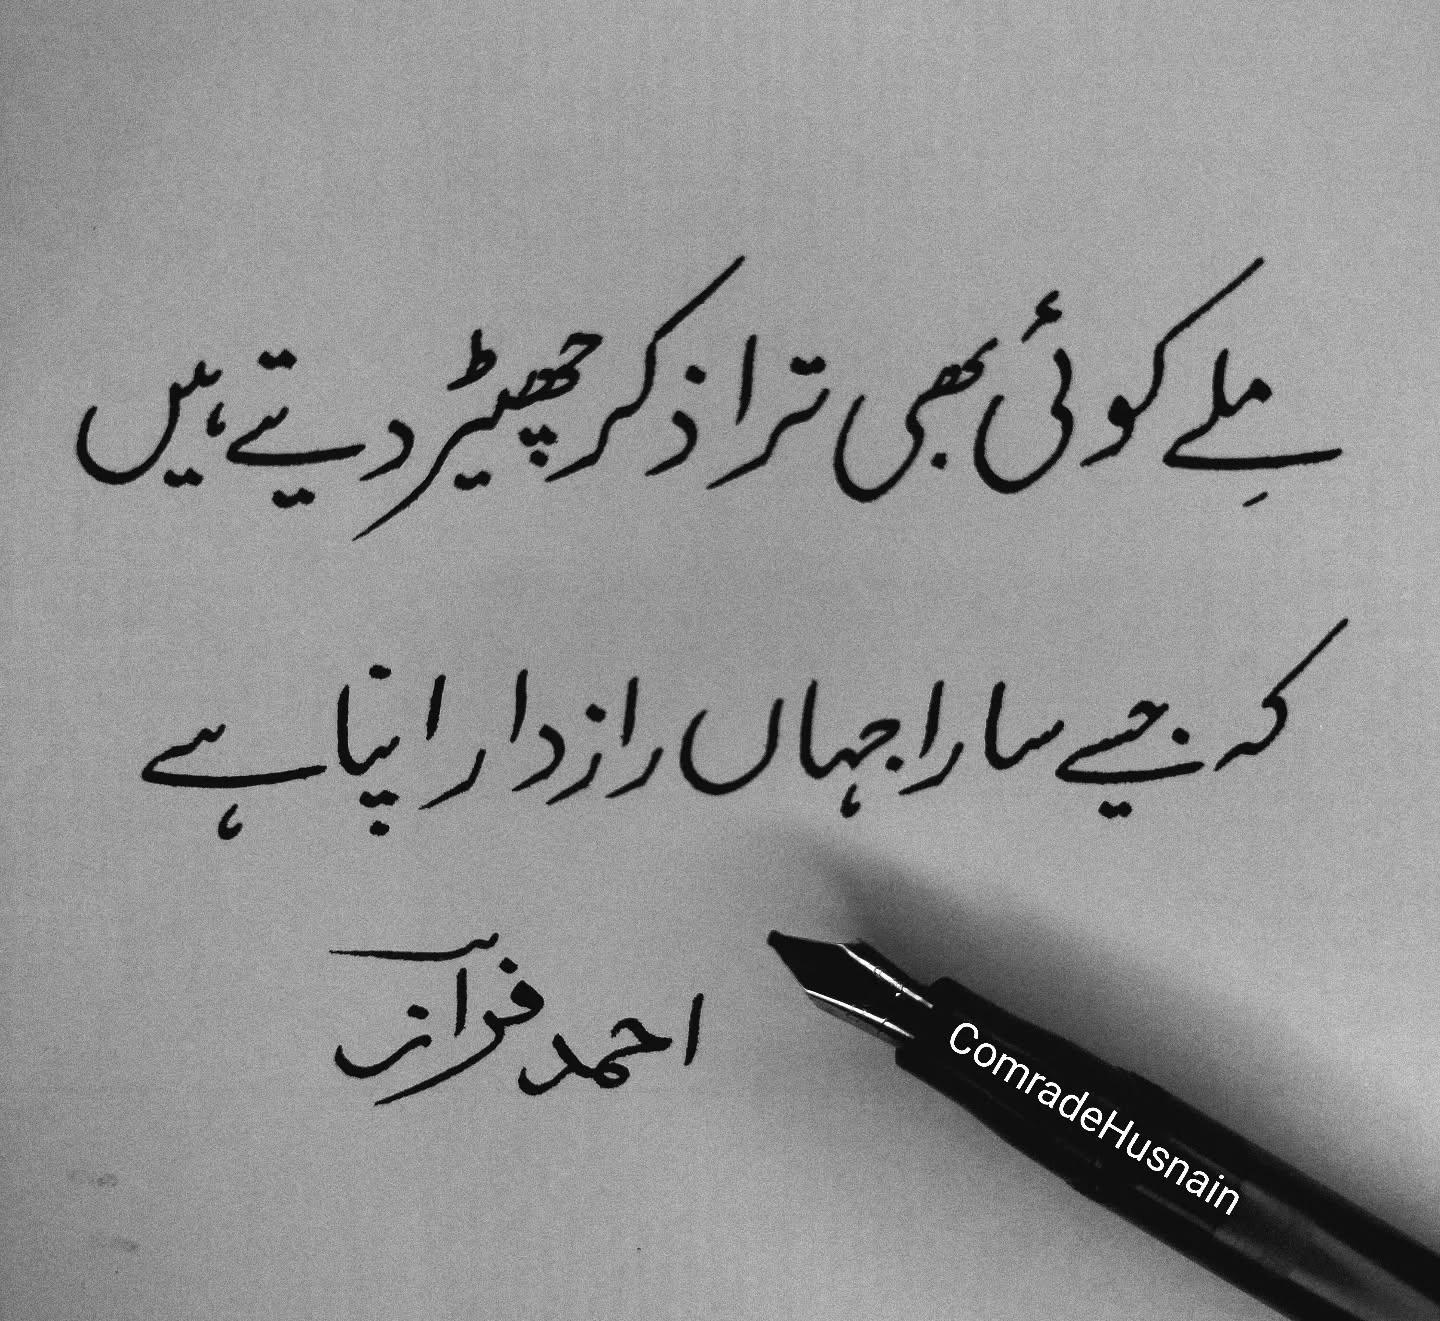 مِلے کوئی بھی ترا ذکر چھیڑ دیتے ہیں
کہ جیسے سارا جہاں رازدار اپنا ہے
احمد فراز
ComradeHusnain